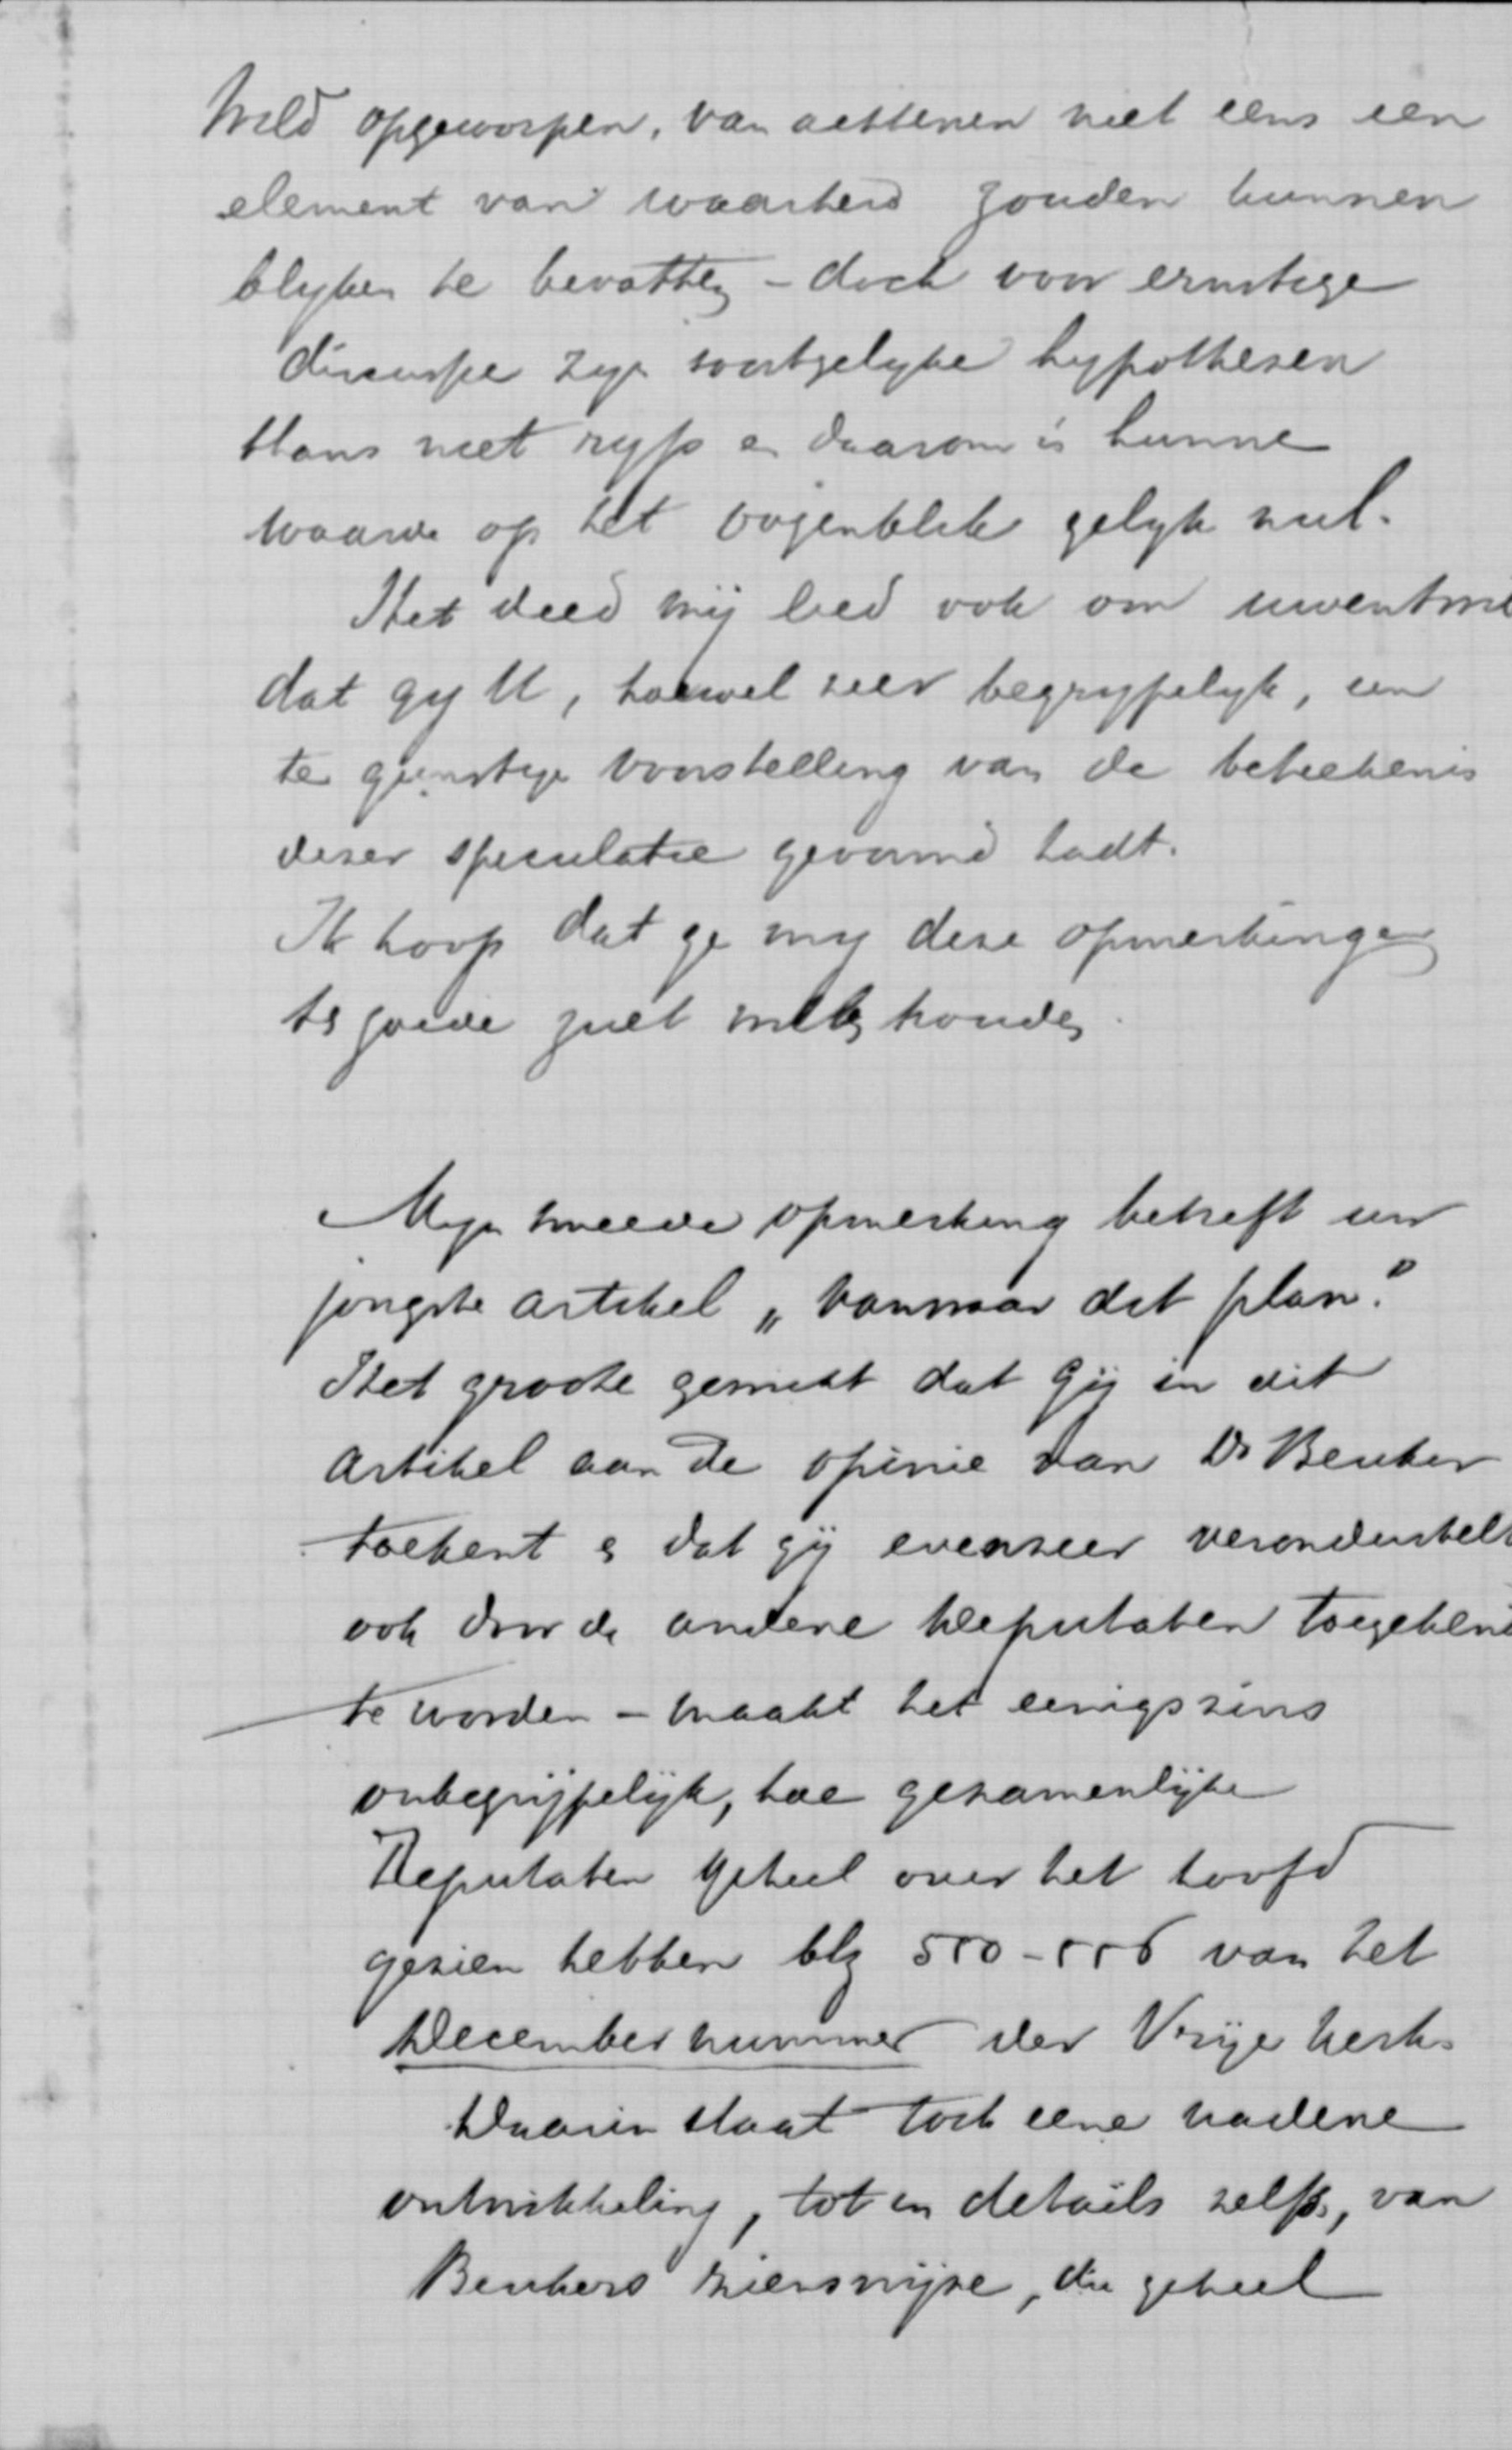 opgeworpen, van achteren niet eens een
element van waarheid zouden kunnen
blyken te bevatten – doch voor ernstige
discussie zyn soortgelyke hypothesen
thans niet ryp en daarom is hunne
waarde op het oogenblik gelyk nul.
Het deed mij leed ook om uwentwil
dat gy U, hoewel zeer begrypelyk, een
te gunstige voorstelling van de beteekenis
dezer speculatie gevormd hadt.
Ik hoop dat ge my deze opmerkingen
ten goede zult willen houden.
Myn tweede opmerking betreft uw
jongste artikel „Vanwaar dit plan?"
Het groote gewicht dat Gij in dit
artikel aan de opinie van Ds Beuker
toekent en dat gij evenzeer veronderstelt
ook door de andere Deputaten toegekend
te worden – maakt het eenigszins
onbegrijpelijk, hoe gezamenlijke
Deputaten geheel over het hoofd
gezien hebben blz 550-556 van het
Decembernummer der Vrije Kerk.
Daarin staat toch eene nadere
ontwikkeling, tot in details zelfs, van
Beukers zienswijze, die geheel